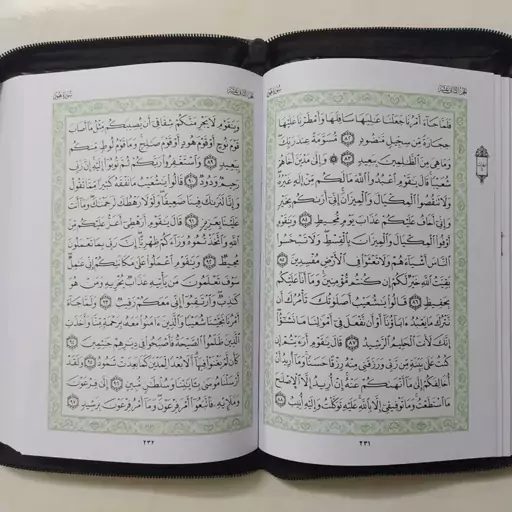 الجزء الثاني عشر
سورة هود
فَلَمَّا جَآءَ أَمْرُنَا جَعَلْنَا عَٰلِيَهَا سَافِلَهَا وَأَمْطَرْنَا عَلَيْهَا
حِجَارَةً مِّن سِجِّيلٍ مَّنضُودٍ ٨٢ مُّسَوَّمَةً عِندَ رَبِّكَ
وَمَا هِىَ مِنَ ٱلظَّٰلِمِينَ بِبَعِيدٍ ٨٣ وَإِلَىٰ مَدْيَنَ أَخَاهُمْ
شُعَيْبًا قَالَ يَٰقَوْمِ ٱعْبُدُوا۟ ٱللَّهَ مَا لَكُم مِّنْ إِلَٰهٍ غَيْرُهُۥ
وَلَا تَنقُصُوا۟ ٱلْمِكْيَالَ وَٱلْمِيزَانَ إِنِّىٓ أَرَىٰكُم بِخَيْرٍ
وَإِنِّىٓ أَخَافُ عَلَيْكُمْ عَذَابَ يَوْمٍ مُّحِيطٍ ٨٤ وَيَٰقَوْمِ
أَوْفُوا۟ ٱلْمِكْيَالَ وَٱلْمِيزَانَ بِٱلْقِسْطِ وَلَا تَبْخَسُوا۟
ٱلنَّاسَ أَشْيَآءَهُمْ وَلَا تَعْثَوْا۟ فِى ٱلْأَرْضِ مُفْسِدِينَ ٨٥
بَقِيَّتُ ٱللَّهِ خَيْرٌ لَّكُمْ إِن كُنتُم مُّؤْمِنِينَ وَمَآ أَنَا۠ عَلَيْكُم
بِحَفِيظٍ ٨٦ قَالُوا۟ يَٰشُعَيْبُ أَصَلَوٰتُكَ تَأْمُرُكَ أَن
نَّتْرُكَ مَا يَعْبُدُ ءَابَآؤُنَآ أَوْ أَن نَّفْعَلَ فِىٓ أَمْوَٰلِنَا مَا نَشَٰٓؤُا۟
إِنَّكَ لَأَنتَ ٱلْحَلِيمُ ٱلرَّشِيدُ ٨٧ قَالَ يَٰقَوْمِ أَرَءَيْتُمْ إِن
كُنتُ عَلَىٰ بَيِّنَةٍ مِّن رَّبِّى وَرَزَقَنِى مِنْهُ رِزْقًا حَسَنًا وَمَآ أُرِيدُ أَنْ
أُخَالِفَكُمْ إِلَىٰ مَآ أَنْهَىٰكُمْ عَنْهُ إِنْ أُرِيدُ إِلَّا ٱلْإِصْلَٰحَ
مَا ٱسْتَطَعْتُ وَمَا تَوْفِيقِىٓ إِلَّا بِٱللَّهِ عَلَيْهِ تَوَكَّلْتُ وَإِلَيْهِ أُنِيبُ ٨٨
٢٣١
الجزء الثاني عشر
سورة هود
وَيَٰقَوْمِ لَا يَجْرِمَنَّكُمْ شِقَاقِىٓ أَن يُصِيبَكُم مِّثْلُ مَآ أَصَابَ
قَوْمَ نُوحٍ أَوْ قَوْمَ هُودٍ أَوْ قَوْمَ صَٰلِحٍ وَمَا قَوْمُ لُوطٍ مِّنكُم
بِبَعِيدٍ ٨٩ وَٱسْتَغْفِرُوا۟ رَبَّكُمْ ثُمَّ تُوبُوٓا۟ إِلَيْهِ إِنَّ رَبِّى
رَحِيمٌ وَدُودٌ ٩٠ قَالُوا۟ يَٰشُعَيْبُ مَا نَفْقَهُ كَثِيرًا مِّمَّا تَقُولُ
وَإِنَّا لَنَرَىٰكَ فِينَا ضَعِيفًا وَلَوْلَا رَهْطُكَ لَرَجَمْنَٰكَ وَمَآ أَنتَ
عَلَيْنَا بِعَزِيزٍ ٩١ قَالَ يَٰقَوْمِ أَرَهْطِىٓ أَعَزُّ عَلَيْكُم مِّنَ
ٱللَّهِ وَٱتَّخَذْتُمُوهُ وَرَآءَكُمْ ظِهْرِيًّا إِنَّ رَبِّى بِمَا تَعْمَلُونَ
مُحِيطٌ ٩٢ وَيَٰقَوْمِ ٱعْمَلُوا۟ عَلَىٰ مَكَانَتِكُمْ إِنِّى عَٰمِلٌ
سَوْفَ تَعْلَمُونَ مَن يَأْتِيهِ عَذَابٌ يُخْزِيهِ وَمَنْ هُوَ
كَٰذِبٌ وَٱرْتَقِبُوٓا۟ إِنِّى مَعَكُمْ رَقِيبٌ ٩٣ وَلَمَّا جَآءَ
أَمْرُنَا نَجَّيْنَا شُعَيْبًا وَٱلَّذِينَ ءَامَنُوا۟ مَعَهُۥ بِرَحْمَةٍ مِّنَّا وَأَخَذَتِ
ٱلَّذِينَ ظَلَمُوا۟ ٱلصَّيْحَةُ فَأَصْبَحُوا۟ فِى دِيَٰرِهِمْ جَٰثِمِينَ ٩٤
كَأَن لَّمْ يَغْنَوْا۟ فِيهَآ أَلَا بُعْدًا لِّمَدْيَنَ كَمَا بَعِدَتْ ثَمُودُ ٩٥ وَلَقَدْ
أَرْسَلْنَا مُوسَىٰ بِـَٔايَٰتِنَا وَسُلْطَٰنٍ مُّبِينٍ ٩٦ إِلَىٰ فِرْعَوْنَ
وَمَلَإِي۟هِۦ فَٱتَّبَعُوٓا۟ أَمْرَ فِرْعَوْنَ وَمَآ أَمْرُ فِرْعَوْنَ بِرَشِيدٍ ٩٧
٢٣٢